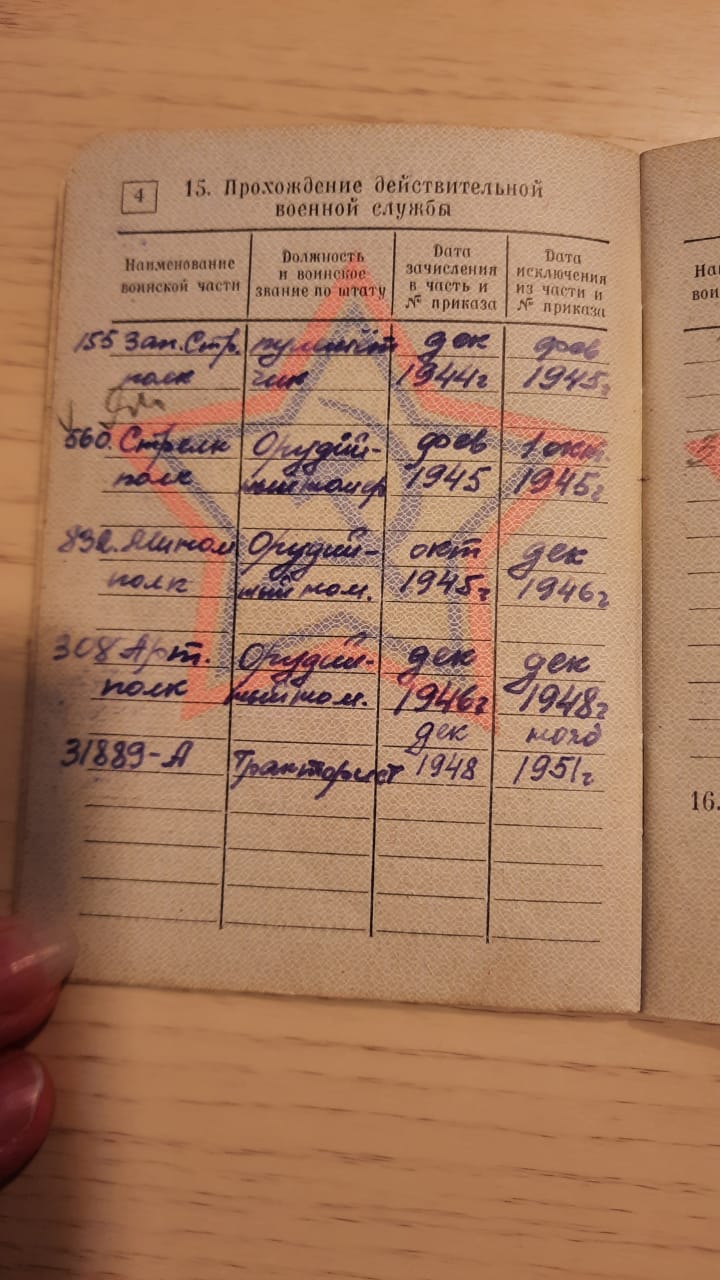 4
15. Прохождение действительной
военной службы
Наименование
воинской части
Должность
и воинское
звание по штату
Дата
зачисления
в часть и
№ приказа
Дата
исключения
из части и
№ приказа
155 Зап. Стр. пулемёт дек фев
полк чик 1944г 1945г
560. Стрелк Орудій- фев 1 окт.
полк ный номер 1945 1945г
832. Мином Орудий- окт дек
полк ный ном. 1945г 1946г
308 Арт. Орудий- дек дек
полк ный ном. 1946г 1948г
дек нояб
31889-А Тракторист 1948 1951г
16.